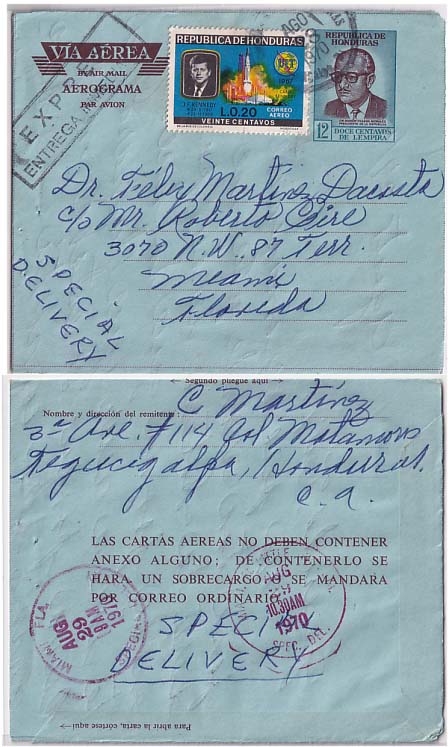 VÍA AÉREA
BY AIR MAIL
AEROGRAMA
PAR AVION
EXPRE
ENTREGA INM
REPUBLICA DE HONDURAS
J.F. KENNEDY
1967
L.0.20
CORREO
AEREO
VEINTE CENTAVOS
REPUBLICA DE
HONDURAS
12
DOCE CENTAVOS
DE LEMPIRA
Dr. Félix Martínez Dacosta
c/o Mr. Roberto
3070 N.W. 87 Terr.
Meami
Floreda
SPECIAL
DELIVERY
Segundo pliegue aquí
Nombre y dirección del remitente:
C Martínez
3ª Ave. #114 Col Matamoros
Tegucigalpa, Honduras.
C.A.
LAS CARTAS AEREAS NO DEBEN CONTENER
ANEXO ALGUNO; DE CONTENERLO SE
HARA UN SOBRECARGO O SE MANDARA
POR CORREO ORDINARIO.
MIAMI FLA.
AUG
29
8AM
1970
AUG
10.30AM
1970
SPEC. DEL.
SPECIAL
DELIVERY
Para abrir la carta, córtese aquí